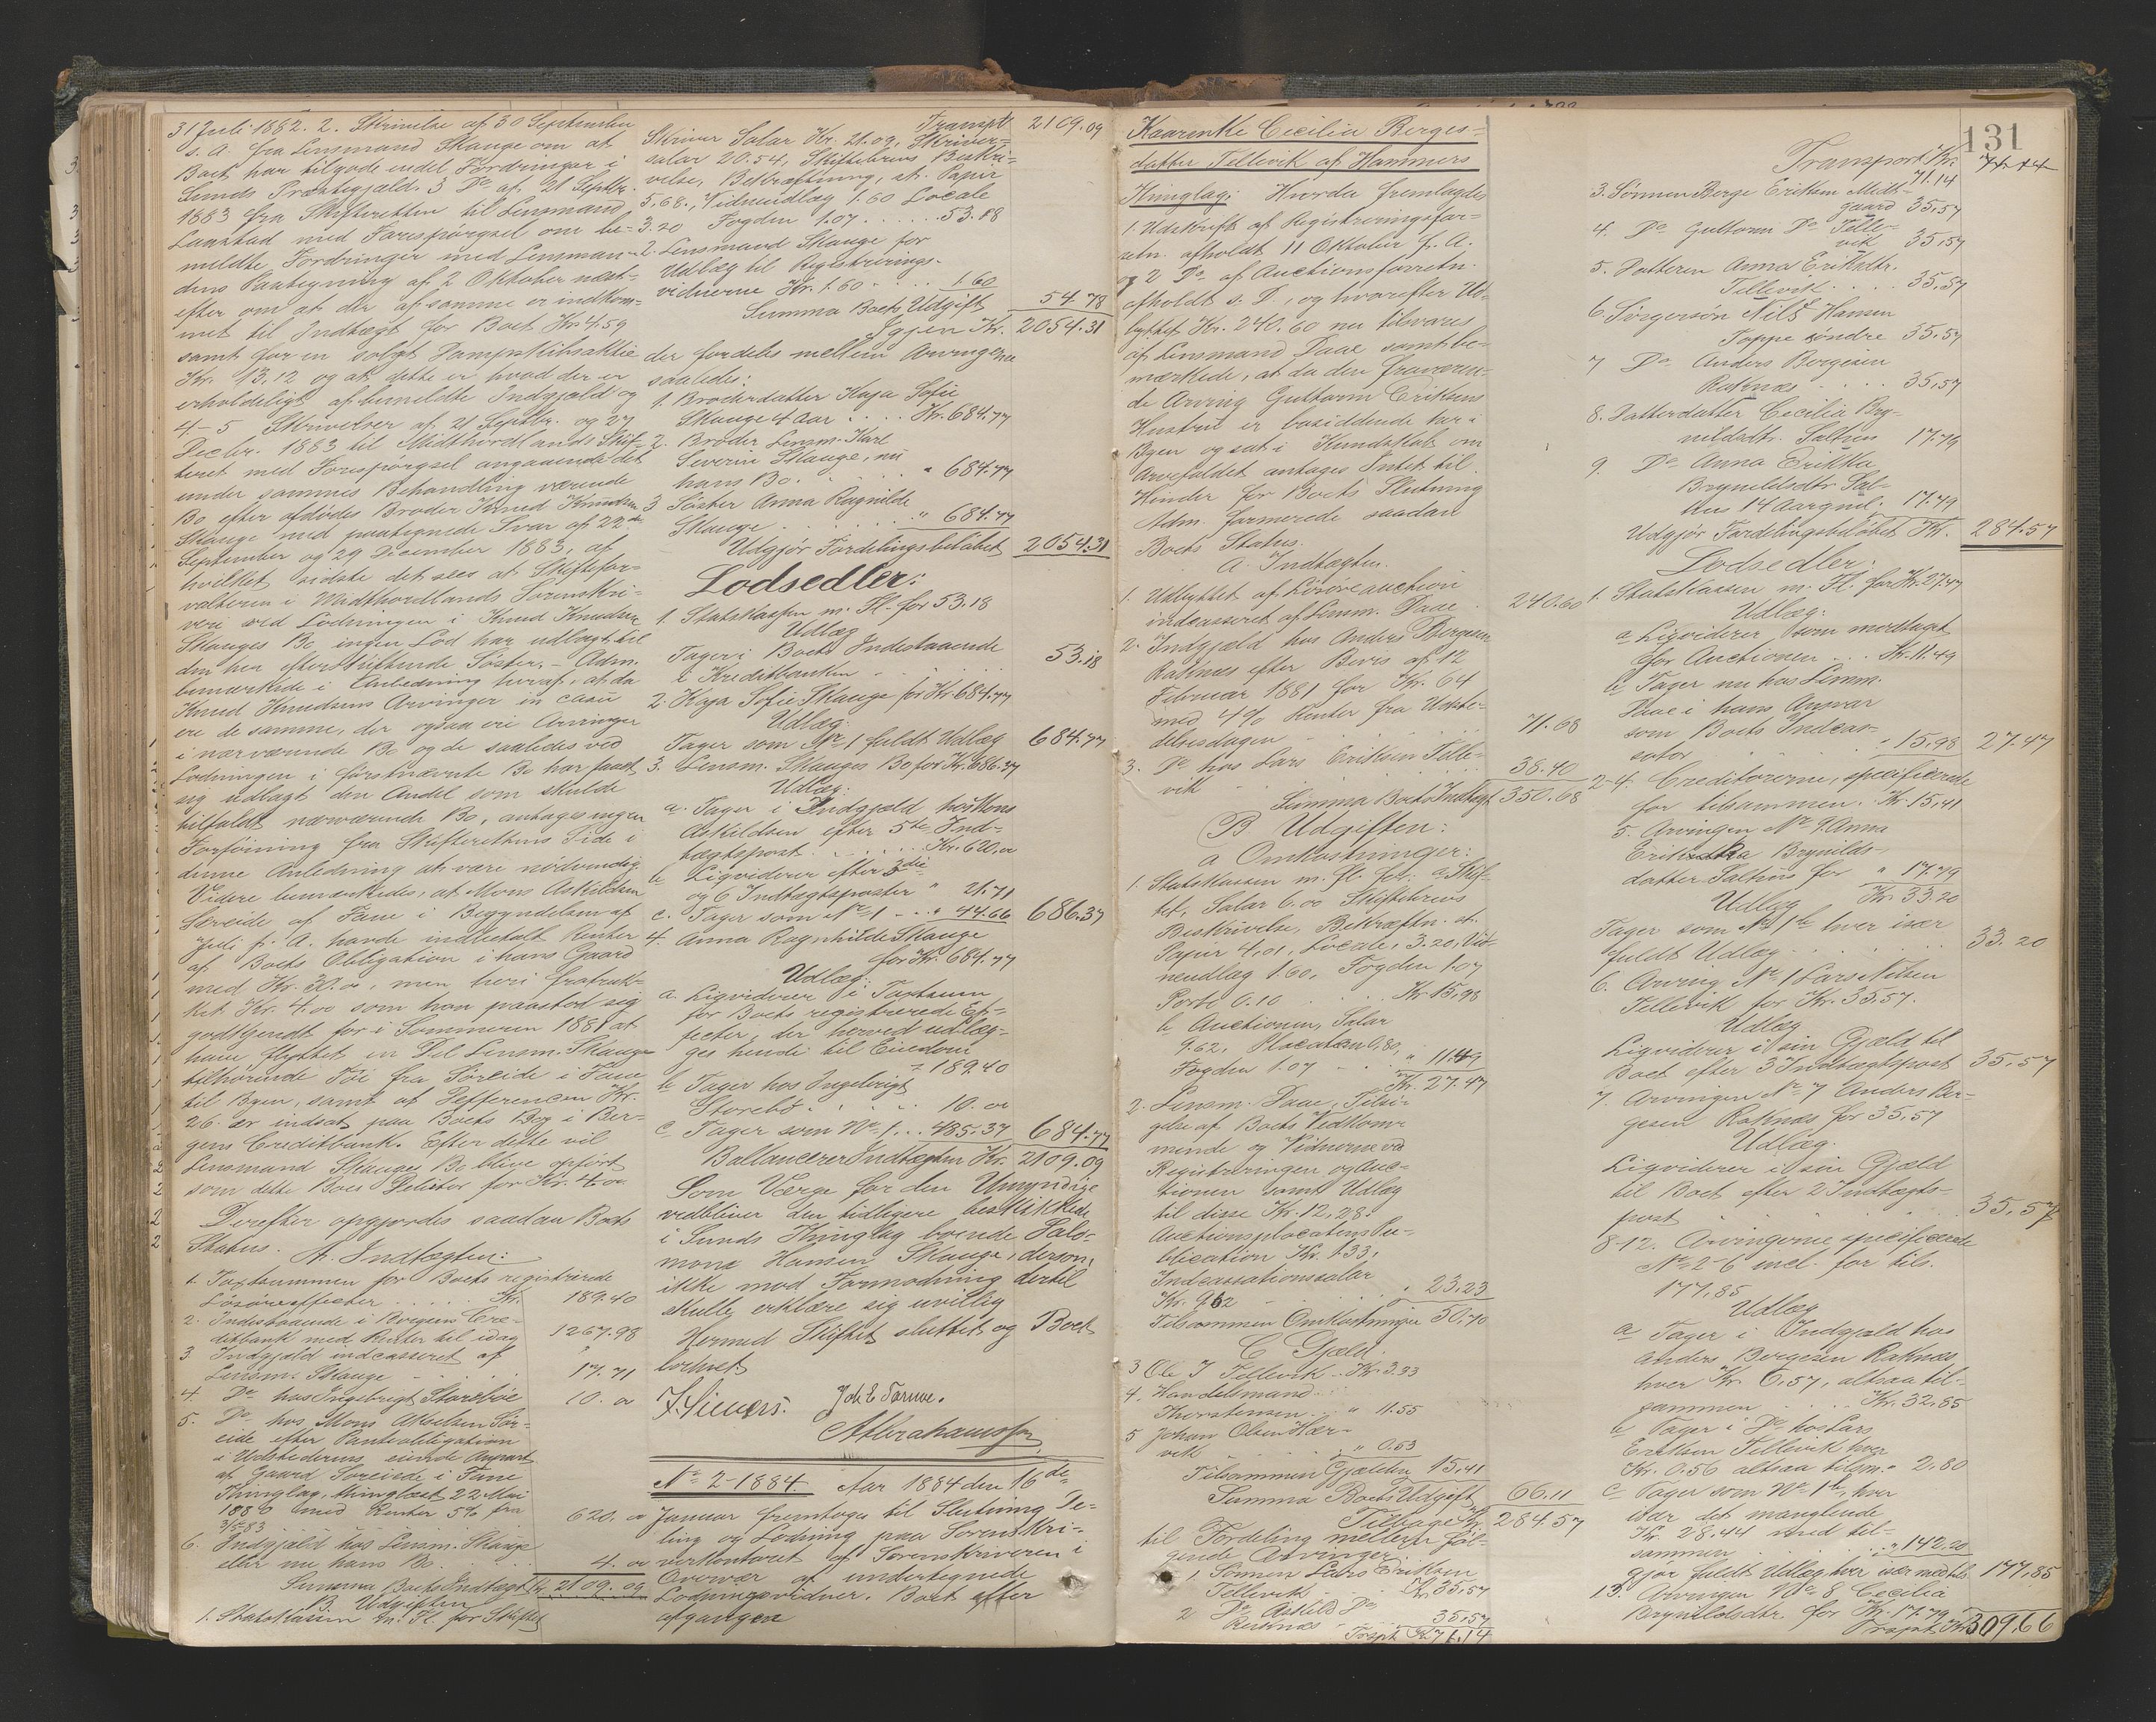 31 Juli 1882. 2. Skrivelse af 30 September
s. A. fra Lensmand Skauge om at
Boet har tilgode endel Fordringer i
Sunds Præstegjæld. 3 Do af 21 Septbr.
1883 fra Skifteretten til Lensmand
med Forespørgsel om be-
meldte Fordringer med Lensman-
dens Paategning af 2 Oktober næst-
efter om at der af samme er indkom-
met til Indtægt for Boet Kr. 4.59
samt for en solgt Dampskibsaktie
Kr. 13.12 og at dette er hvad der er
erholdeligt af bemeldte Indgjæld og
4-5 Skrivelser af 21 Septbr. og 27
Decbr. 1883 til Midthordlands Skif-
teret med Forespørgsel angaaende det
under sammes Behandling værende
Bo efter afdødes Broder Knud Knudsen
Skauge med paategnede Svar af 22de
September og 29 December 1883, af
hvilket sidste det sees at Skiftefor-
valteren i Midthordlands Sorenskri-
veri ved Lodningen i Knud Knudsen
Skauges Bo ingen Lod har udlagt til
den her efterskiftende Søster. – Adm.
bemærkede i Anledning heraf, at da
Knud Knudsens Arvinger in casu
ere de samme, der ogsaa ere Arvinger
i nærværende Bo og de saaledes ved
Lodningen i førstnævnte Bo har faaet
sig udlagt den Andel som skulde
tilfaldt nærværende Bo, antages ingen
Forføining fra Skifterettens Side i
denne Anledning at være nødvendig.
Videre bemærkedes, at Mons Askildsen
Søreide af Fane i Begyndelsen af
Juli f. A. havde indbetalt Renter
af Boets Obligation i hans Gaard
med Kr. 30.00, men heri fratruk-
ket Kr. 4.00 som han paastod sig
godtgjort for i Sommeren 1881 at
have flyttet en Del Lensm. Skauge
tilhørende Tøi fra Søreide i Fane
til Byen, samt at Differencen Kr.
26 er indsat paa Boets Bog i Ber-
gens Creditbank. Efter dette vil
Lensmand Skauges Bo blive opført
som dette Boes Debitor for Kr. 4.00
Derefter opgjordes saadan Boets
Status. A. Indtægten:
1. Taxtsummen for Boets registrerede
Løsøreeffecter . . . . Kr. 189.40
2. Indestaaende i Bergens Cre-
ditbank med Renter til idag 1267.98
3. Indgjæld indcasseret af
Lensm. Skauge 17.71
4. Do hos Ingebrigt Storebøe 10.00
5. Do hos Mons Askildsen Sør-
eide efter Panteobligation
i Udstederens eiende Anpart
af Gaard Søreide i Fane
Thinglag, thinglæst 22 Mai
1880 med Renter 5% fra
620.00
6. Indgjæld hos Lensm. Skauge
eller nu hans Bo 4.00
Summa Boets Indtægt Kr. 2109.09
B. Udgiften
1. Statskassen m. Fl. for Skiftet
Transpt 2109.09
Skriver Salar Kr. 21.09, Skriver-
salar 20.54, Skiftebrevs Beskri-
velse, Bekræftning, st. Papir
5.68., Vidneudlæg 1.60 Locale
3.20 Fogden 1.07 . . . . . 53.18
2. Lensmand Skauge for
Udlæg til Registrerings-
vidnerne Kr. 1.60 . . . . 1.60
Summa Boets Udgift 54.78
Igjen Kr. 2054.31
der fordeles mellem Arvingerne
saaledes:
1. Broderdatter Kaja Sofie
Skauge 4 Aar . . . . Kr. 684.77
2. Broder Lensm. Karl
Severin Skauge, nu
hans Bo. " 684.77
3 Søster Anna Ragnilde
Skauge " 684.77
Udgjør Fordelingsbeløbet 2054.31
Lodsedler:
1. Statskassen m. Fl. for 53.18
Udlæg
Tager i Boets Indestaaende
i Kreditbanken 53.18
2. Kaja Sofie Skauge for Kr. 684.77
Udlæg:
Tager som No 1 fuldt Udlæg 684.77
3. Lensm. Skauges Bo for Kr. 686.37
Udlæg:
a. Tager i Indgjæld hos Mons
Askildsen efter 5te Ind-
tægtspost . . . . . Kr. 620.00
b Liqviderer efter 3die
og 6 Indtægtsposter " 21.71
c. Tager som No 1 " 44.66 686.37
4. Anna Ragnhilde Skauge
for Kr. 684.77
Udlæg:
a. Liqviderer i Taxtsum
for Boets registrerede Ef-
fecter, der herved udlæg-
ges hende til Eiendom
189.40
b Tager hos Ingebrigt
Storebø . . . . 10.00
c Tager som No 1 . . 485.37 684.77
Ballancerer Indtægten Kr. 2109.09
Som Værge for den Umyndige
vedbliver den tidligere beskikkede
i Sunds Thinglag boende Salo-
mon Hansen Skauge, dersom
ikke mod Formodning dertil
skulle erklære sig uvillig
Hermed Skiftet sluttet og Boet
lodnet.
F. Sievers. Joh E Tarmoe.
Abrahamson
No 2-1884 Aar 1884 den 16de
Januar fremtoges til Slutning De-
ling og Lodning paa Sorenskri-
verkontoret af Sorenskriveren i
Overvær af undertegnede
Lodningsvidner. Boet efter
afgangen
131
Kaarentke Cecilia Berges-
datter Tellevik af Hammers
Thinglag: Hvorda fremlagdes
1. Udskrift af Registreringsfor-
retn. afholdt 11 Oktober f. A.
og 2 Do. af Auctionsforretn.
afholdt s. D., og hvorefter Ud-
byttet Kr. 240.60 nu tilsvares
af Lensmand Daae samt be-
mærkede, at da den fraværen-
de Arving Guttorm Eriksens
Hustru er besiddende her i
Byen og sat i Kundskab om
Arvefaldet antages Intet til
Hinder for Boets Slutning
Adm. formerede saadan
Boets Status.
a. Indtægten.
1. Udbyttet af Løsøreauction
indcasseret af Lensm. Daae 240.60
2. Indgjæld hos Anders Bergesen
Raknæs efter Bevis af 12
Februar 1881 for Kr. 64
med 4% Renter fra Udste-
delsesdagen 71.08
3. Do hos Lars Eriksen Telle-
vik 38.40
Summa Boets Indtægt 350.08
B Udgiften:
a Omkostninger:
1. Statskassen m. fl. for: a. Skif-
tet, Salar 6.00 Skiftebrevs
Beskrivelse, Bekræftn. st.
Papir 4.01, Locale, 3.20, Vid-
neudlæg 1.60, Fogden 1.07
Porto 0.10 . . . Kr. 15.98
b Auctionen, Salar
9.62, Placaten 0.80,
Fogden 1.07 " 11.49
Kr. 27.47
2. Lensm. Daae, Tilsi-
gelse af Boets Vedkom-
mende og Vidnerne ved
Registreringen og Auc-
tionen samt Udlæg
til disse Kr. 12,28
Auctionsplacatens Pu-
blication Kr. 1.33,
Indcassationssalar
Kr. 9.62 " 23,23
Tilsammen Omkostninger 50,70
C Gjæld.
3 Ole J Tellevik . . Kr. 3.33
4. Handelsmand
Thorstensen . . . " 11.55
5 Johan Olsen Hær-
vik " 0.53
Tilsammen Gjælden 15,41
Summa Boets Udgift 66.11
Tilbage Kr. 284.57
til Fordeling mellem føl-
gende Arvinger
1 Sønnen Lars Eriksen
Tellevik . . Kr. 35,57
2 Do Askild Do
Raknæs 35,57
Trspt Kr 71.14
Transport Kr.
71.14
3. Sønnen Berge Eriksen Midt-
gaard 35,57
4. Do Guttorm Do Telle-
vik 35,57
5. Datteren Anna Eriksdtr.
Tellevik . . . . 35,57
6. Nils Hansen
Toppe søndre 35.57
7 Do Anders Bergesen
Raknæs . . . . 35,57
8. Datterdatter Cecilia Bry-
nildsdtr. Salhus 17.79
9. Do Anna Erikka
Bryneldsdtr Sal-
hus 14 Aar gml. 17.79
Udgjør Fordelingsbeløbet Kr. 284.57
Lodsedler:
1. Statskassen m. Fl. for Kr. 27.47
Udlæg:
a Liqviderer som modtaget
for Auctionen . . Kr. 11.49
b Tager nu hos Lensm.
Daae i hans Ansvar
som Boets Indcas-
sator " 15.98 27.47
2-4. Creditorerne, specificerede
for tilsammen. Kr. 15,41
5. Arvingen No 9 Anna
Erikka Brynilds-
datter Salhus for " 17.79
Udlæg Kr. 33.20
Tager som No 1 b hver især
fuldt Udlæg 33.20
6. Arving No 1 Lars
Tellevik for Kr. 35.57.
Udlæg
Liqviderer i sin Gjæld til
Boet efter 3 Indtægtspost 35.57
7. Arvingen No 7 Anders Ber-
gesen Raknæs for 35.57
Udlæg.
Liqviderer i sin Gjæld
til Boet efter 2 Indtægts-
post 35.57
8-12. Arvingerne specificerede
No 2-6 incl. for tils.
177,85
Udlæg
a Tager i Indgjæld hos
Anders Bergesen Raknæs
hver Kr 6,57, altsaa til-
sammen Kr. 32,85
b Tager i Do hos Lars
Eriksen Tellevik hver
Kr. 0.56 altsaa tilsm. " 2,80
c Tager som No 1 b, hver
især det manglende
Kr. 28.44 med til-
sammen " 142.20
gjør fuldt Udlæg hver især med tils. 177,85
13. Arvingen No 8 Cecilia
Brynildsdtr. for Kr. 17.79
Transpt. Kr 309.66